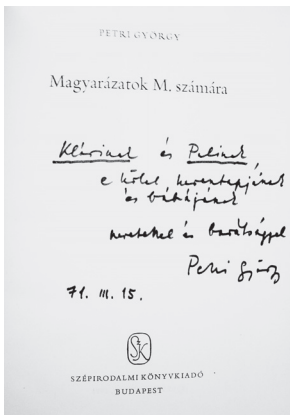 PETRI GYÖRGY
Magyarázatok M. számára
Klárinak és Palinak,
e kötet keresztapjának
és bábájának
szeretettel és barátsággal
Petri György
71. III. 15.
SZÉPIRODALMI KÖNYVKIADÓ
BUDAPEST